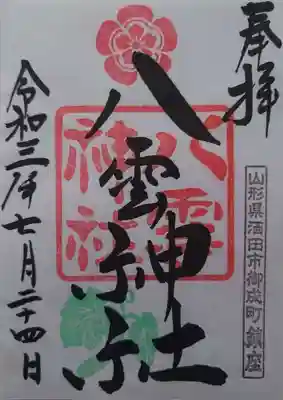 奉拝
山形県酒田市御成町 鎮座
八雲神社
八雲
神社
令和三年七月二十四日